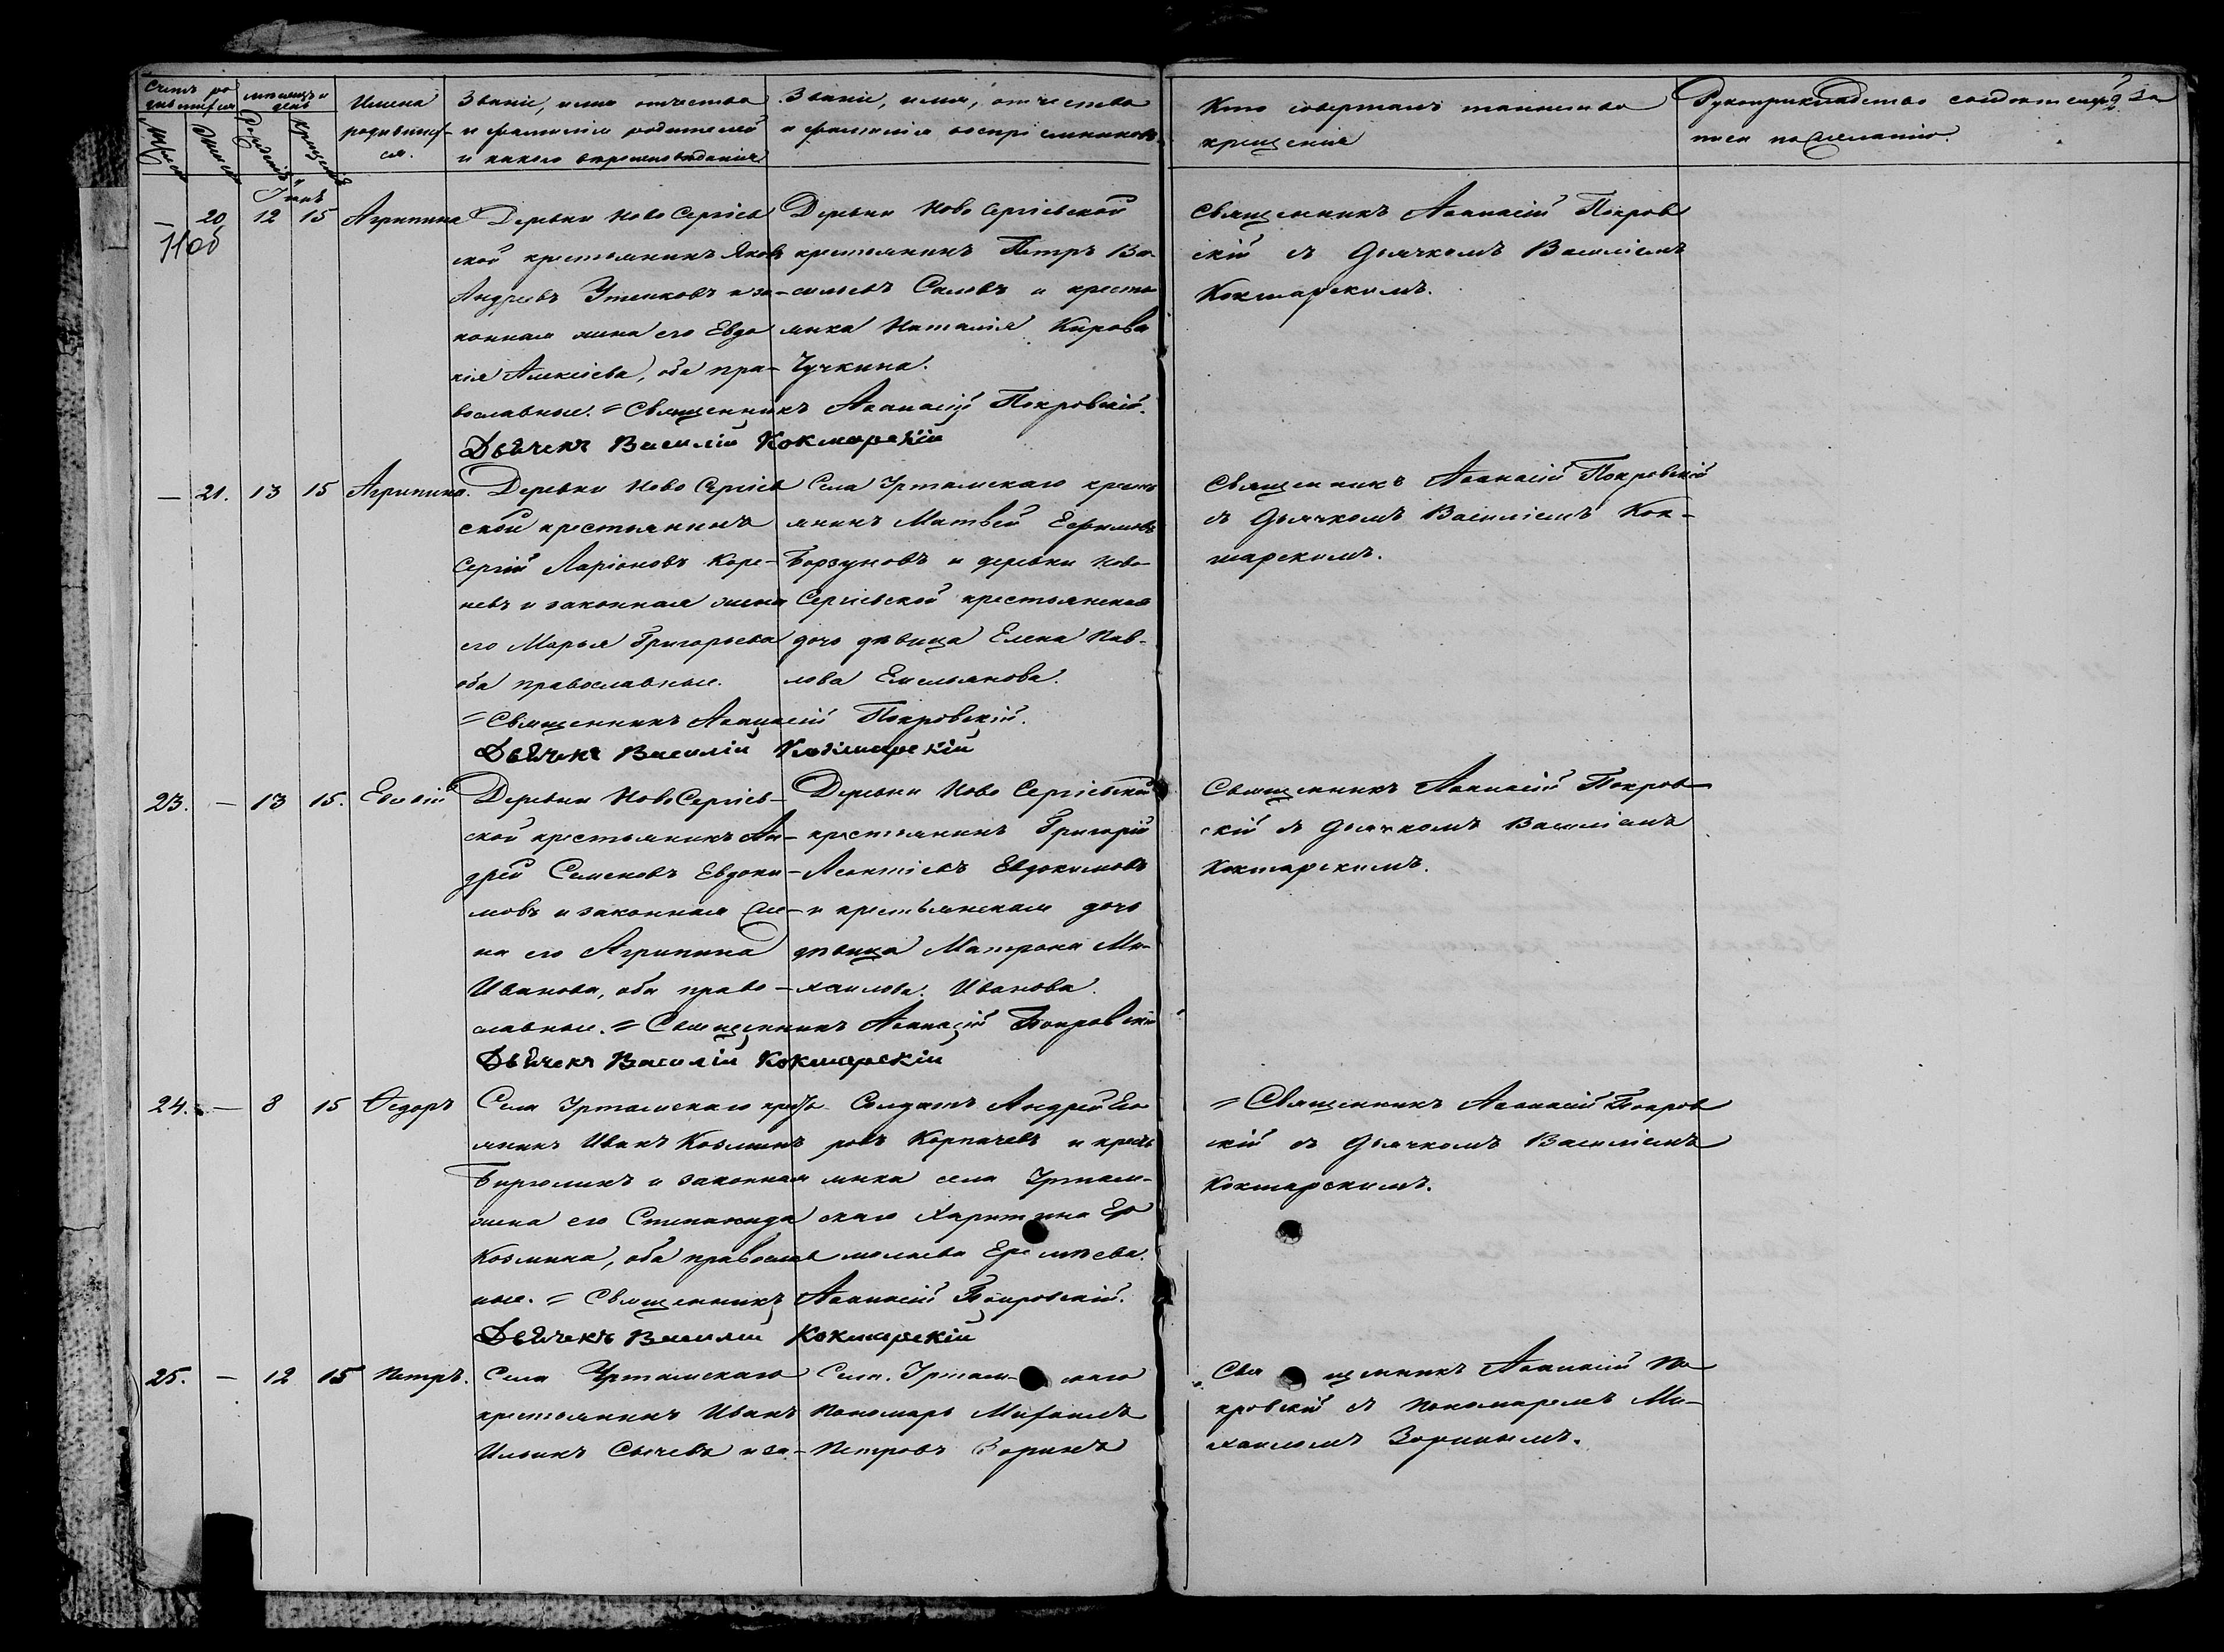 Счетъ ро
дившихся
Мужеска
Женска
мѣсяцъ и
день
Рожденія
Крещенія
Имена
родивших-
ся.
Званіе, имя отчество
и фамилія родителей
и какого вѣроисповѣданія
Званіе, имя, отчество
и фамилія воспріемниковъ
Кто совершалъ таинство
крещенія
Рукоприкладство свидѣтелей за
писи по желанію.
Іюнь
— 20 12 15 Агрипина
11об
Деревни Ново Сергіев
ской крестьянинъ Яковъ
Андреевъ Утенковъ и за-
конная жена его Евдо
кія Алексіева, оба пра-
вославные. = Священникъ Аѳанасій Покровскій.
Дьячекъ Василій Кокшарскій
Деревни Ново Сергіевской
крестьянинъ Петръ Ва-
сильевъ Саловъ и кресть
янка Наталія Кирова
Чучкина.
Священникъ Аѳанасій Покров
скій съ Дьячкомъ Василіемъ
Кокшарскимъ.
— 21. 13 15 Агрипина.
Деревни Ново Сергіев
ской крестьянинъ
Сергій Ларіоновъ Коре-
невъ и законная жена
его Марья Григорьева
оба православные.
= Священникъ Аѳанасій Покровскій.
Дьячекъ Василій Кокшарскій
Села Уртамскаго кресть
янинъ Матвей Ефимовъ
Борзуновъ и деревни Ново-
Сергіевской крестьянская
дочь дѣвица Елена Пав-
лова Емельянова.
Священникъ Аѳанасій Покровскій
съ Дьячкомъ Василіемъ Кок-
шарскимъ.
23. — 13 15.
Деревни Ново Сергіев-
ской крестьянинъ Ан-
дрей Семеновъ Евдоки-
мовъ и законная же-
на его Агрипина
Иванова, оба право-
славные. = Священникъ Аѳанасій Покровскій
Дьячекъ Василій Кокшарскій
Деревни Ново Сергіевской
крестьянинъ Григорій
Леонтіевъ Евдокимовъ
и крестьянская дочь
дѣвица Матрона Ми-
хаилова Иванова.
Священникъ Аѳанасій Покров
скій съ Дьячкомъ Василіемъ
Кокшарскимъ.
24. — 8 15 Ѳедоръ
Села Уртамскаго кресть
янинъ Иванъ Козминъ
Бирюлинъ и законная
жена его Степанида
Козмина, оба православ
ные. = Священникъ Аѳанасій Покровскій.
Дьячекъ Василій Кокшарскій
Солдатъ Андрей Его
ровъ Карпачевъ и кресть
янка села Уртам-
скаго Харитина Ер
молаева Еремѣева.
= Священникъ Аѳанасій Покров
скій съ Дьячкомъ Василіемъ
Кокшарскимъ.
25. — 12 15 Петръ.
Села Уртамскаго
крестьянинъ Иванъ
Ильинъ Сычевъ и за-
Села Уртам- скаго
Пономарь Михаилъ
Петровъ Зоринъ
Священникъ Аѳанасій По
кровскій съ Пономаремъ Ми-
хаиломъ Зоринымъ.